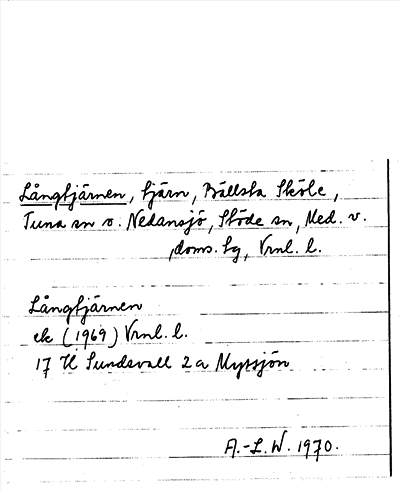 Långtjärnen, tjärn, Bällsta Sköle,
Tuna sn o. Nedansjö, Stöde sn, Med. v.
doms. tg, Vrnl. l.
Långtjärnen
ek (1969) Vrnl. l.
17 H Sundsvall 2 a Myssjön
A.-L.W. 1970.